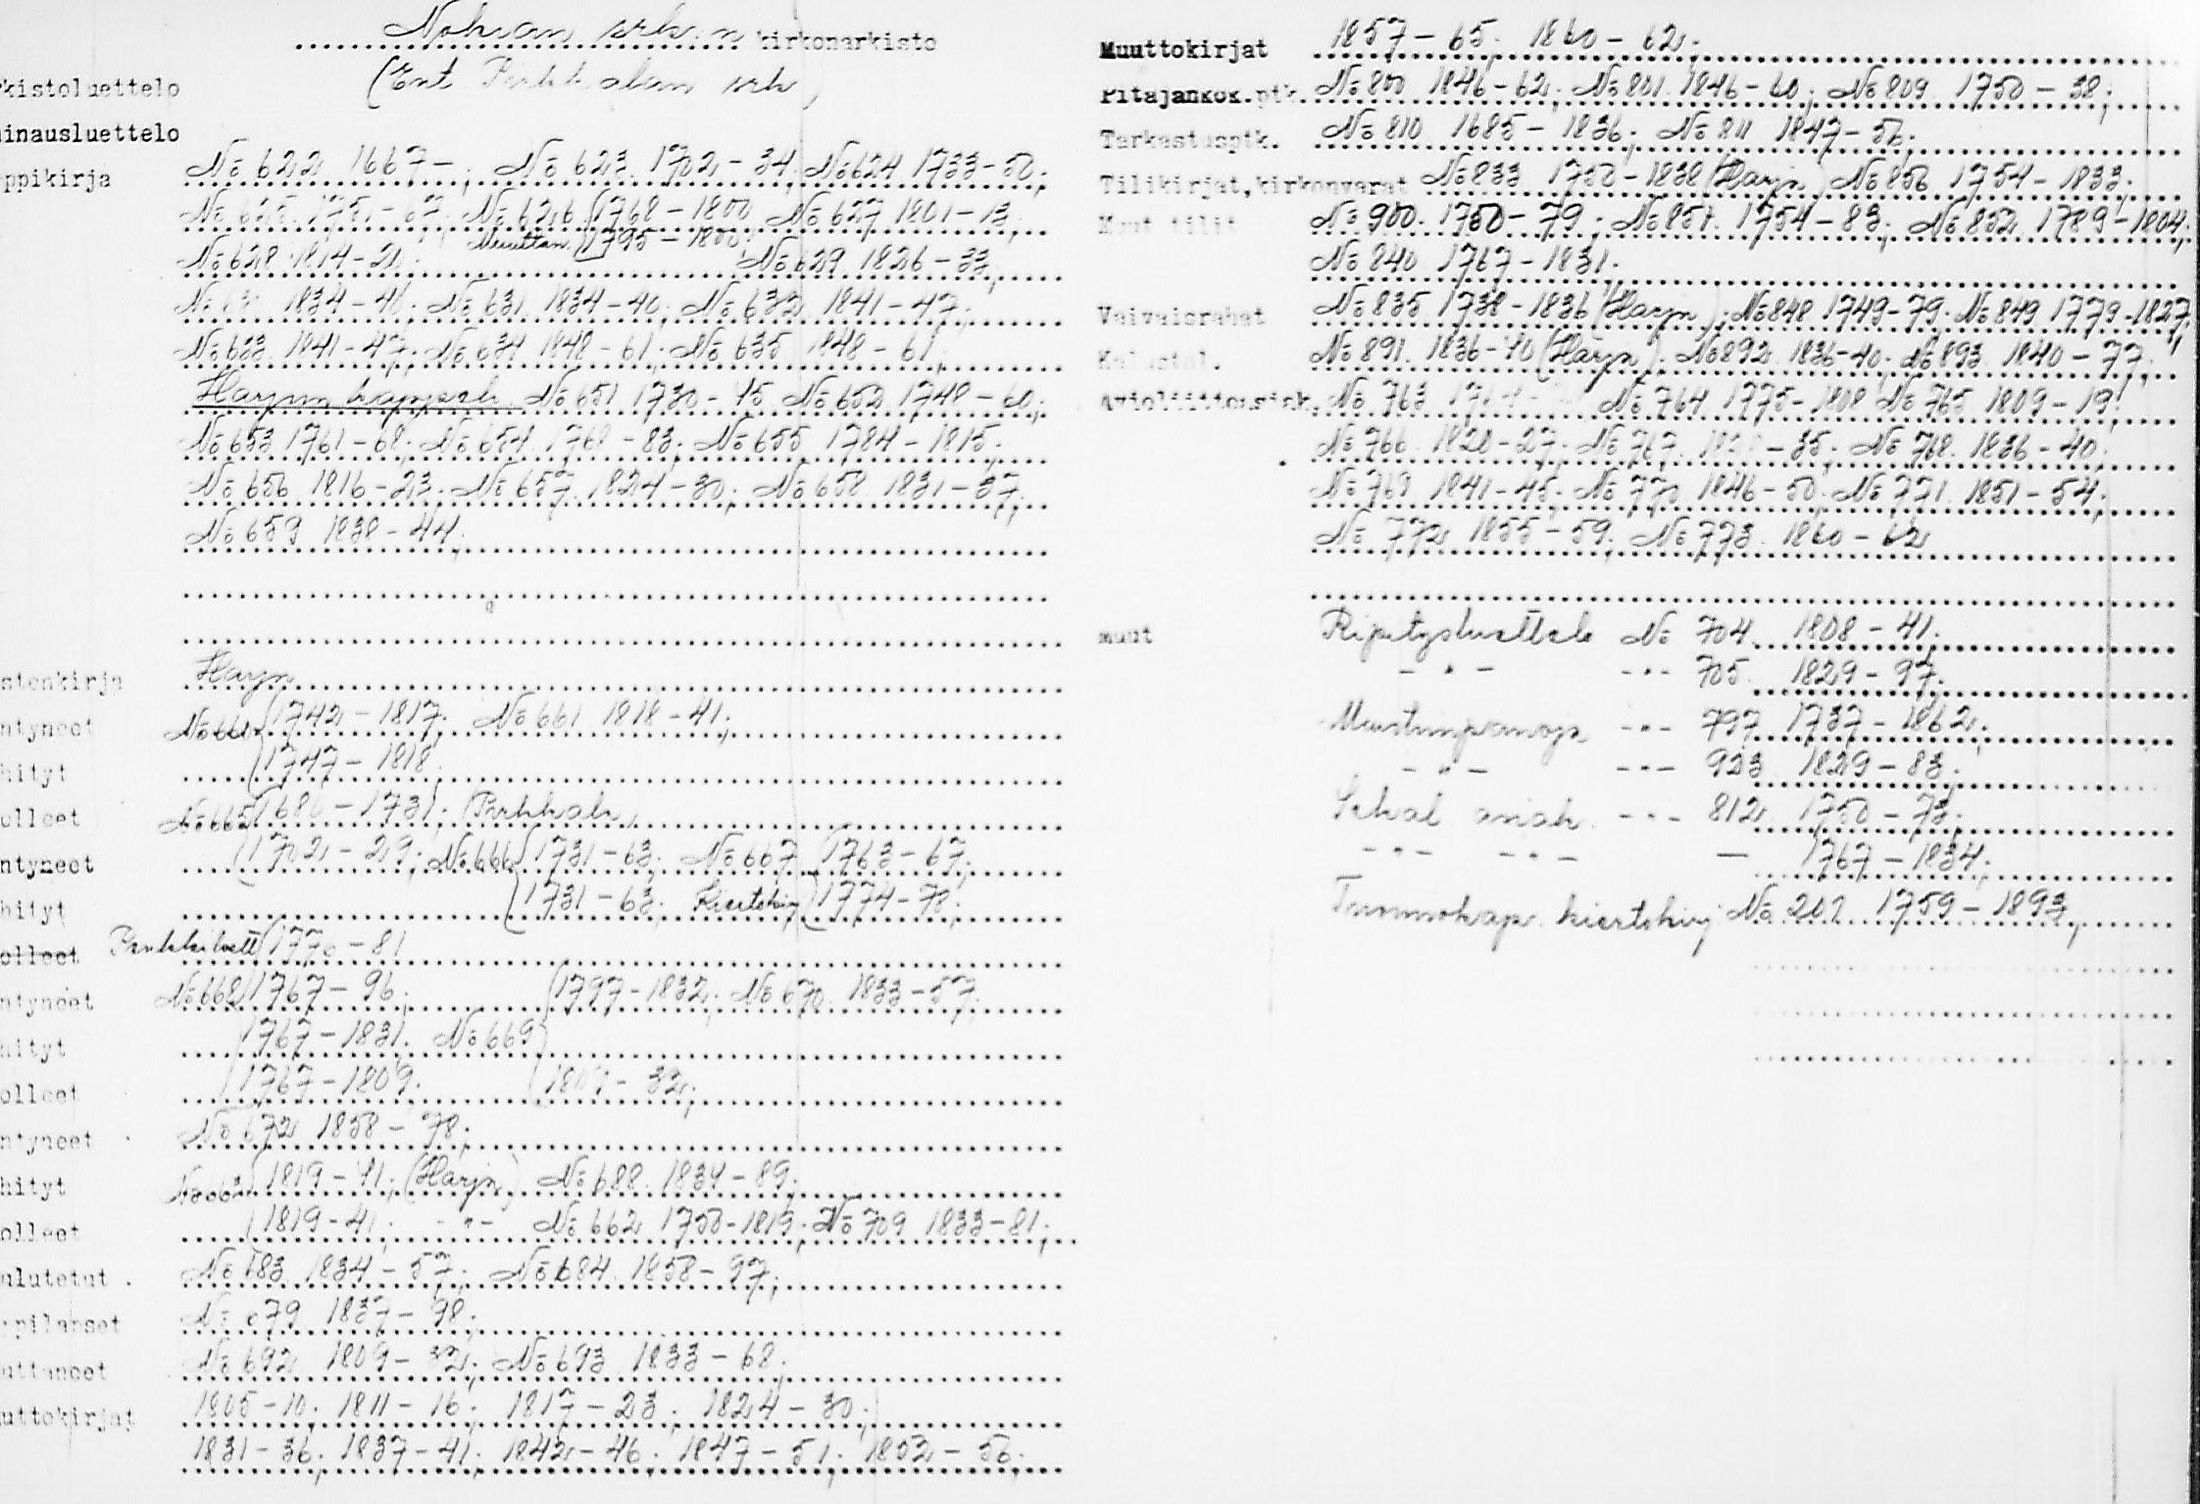 Nokian srk:n kirkonarkisto
kistoluettelo (Ent. Pirkkalan srk)
inausluettelo
ppikirja № 622 1667 – ; № 623 1702 – 34; № 624 1733 – 50;
№ 625 1751 – 67; № 626 1768 – 1800 № 627 1801 – 13;
Muuttan. 1795 – 1800;
№ 628 1814 – 21; № 629 1826 – 33;
1834 – 40; № 631 1834 – 40; № 632 1841 – 47;
№ 633 1841 – 47; № 634 1848 – 61; № 635 1848 – 61;
Harjun kappseli № 651 1730 – 45 № 652 1748 – 60;
№ 653 1761 – 68; № 654 1768 – 83; № 655 1784 – 1815;
№ 656 1816 – 23; № 657 1824 – 30; № 658 1831 – 37;
№ 659 1838 – 44;
stenkirja Harjn
ntyneet № 660 1742 – 1817; № 661 1818 – 41;
hityt 1747 – 1818
olleet № 665 1686 – 1731; Pirkkala
ntyneet 1702 – 29; № 666 1731 – 63; № 667 1763 – 67;
hityt 1731 – 63; Kiertokirj 1774 – 78;
olleet 1770 – 81
ntyneet № 668 1767 – 96; 1797 – 1832; № 670 1833 – 57;
hityt 1767 – 1831; № 669
olleet 1767 – 1809; 1809 – 32;
ntyneet № 672 1858 – 78;
hityt 1819 – 41; (Harjn) № 688 1834 – 89;
olleet 1819 – 41; – " – № 662 1750 – 1819; № 709 1833 – 81;
ulutetut № 683 1834 – 57; № 684 1858 – 97;
pilapset № 679 1837 – 98;
uttaneet № 692 1809 – 32; № 693 1833 – 68;
uttokirjat 1805 – 10; 1811 – 16; 1817 – 23; 1824 – 30;
1831 – 36; 1837 – 41; 1842 – 46; 1847 – 51; 1852 – 56;
Muuttokirjat 1857 – 65; 1860 – 62;
Pitäjänkok.ptk. № 800 1846 – 62; № 801 1846 – 60; № 809 1750 – 38;
Tarkastuspk. № 810 1685 – 1836; № 811 1847 – 56;
Tilikirjat,kirkonvarat № 833 1750 – 1838 (Harjn) № 850 1754 – 1833;
Muut tilit № 900 1750 – 79; № 851 1754 – 83; № 852 1789 – 1804;
№ 840 1767 – 1831;
Vaivaisrahat № 835 1738 – 1836 (Harjn); № 848 1749 – 79; № 849 1779 – 1827;
Kalustol. № 891 1836 – 40 (Harjn); № 892 1836 – 40; № 893 1840 – 77;
Avioliittousisk. № 763 № 764 1775 – 1808 № 765 1809 – 19;
№ 766 1820 – 27; № 767 – 35; № 768 1836 – 40;
№ 769 1841 – 45; № 770 1846 – 50; № 771 1851 – 54;
№ 772 1855 – 59; № 773 1860 – 62
muut Ripitysluettelo № 704 1808 – 41;
– " – – " – 705 1829 – 97;
Muistiinpanoja – " – 797 1737 – 1862;
– " – – " – 923 1829 – 83;
Sekal asiak. – " – 812 1750 – 73;
– " – – " – — 1767 – 1834;
Tuomiokap. kiertokirj № 201 1759 – 1893;